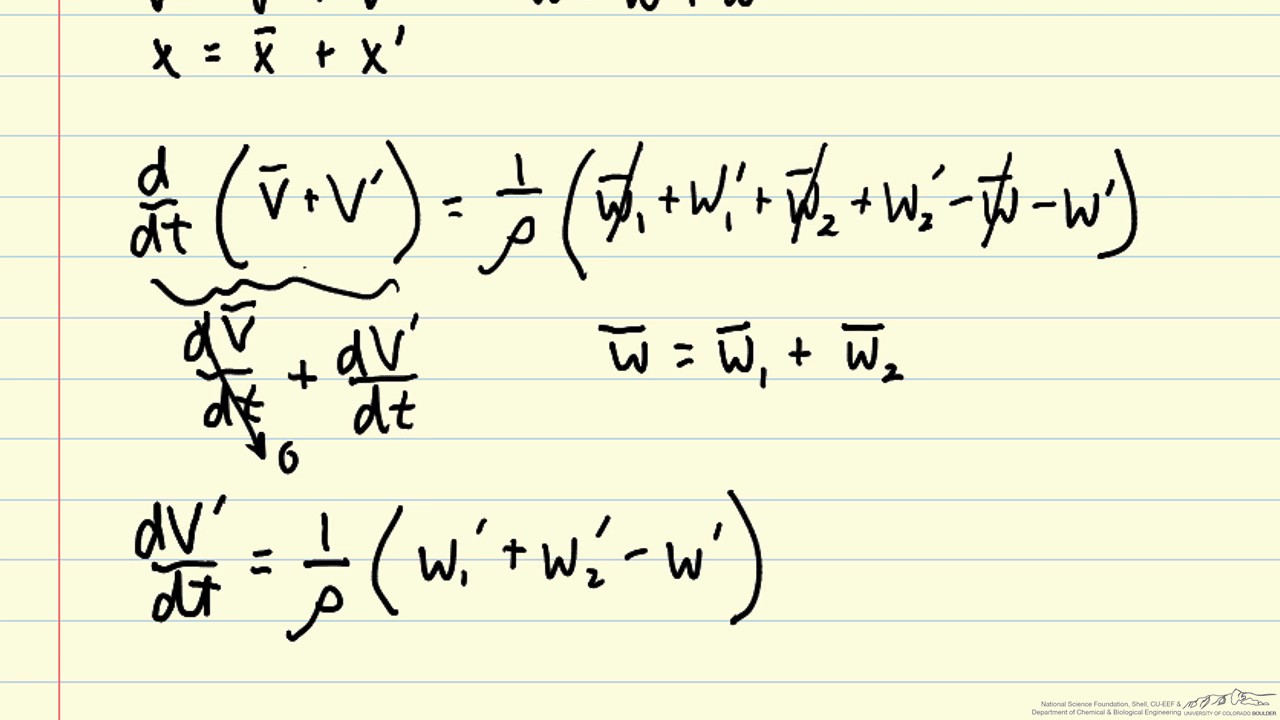 x = x̄ + x′
d/dt (V̄ + V′) = 1/ρ (w̄₁ + w₁′ + w̄₂ + w₂′ − w̄ − w′)
dV̄/dt + dV′/dt
w̄ = w̄₁ + w̄₂
0
dV′/dt = 1/ρ (w₁′ + w₂′ − w′)
National Science Foundation, Shell, CU-EEF &
Department of Chemical & Biological Engineering UNIVERSITY OF COLORADO BOULDER